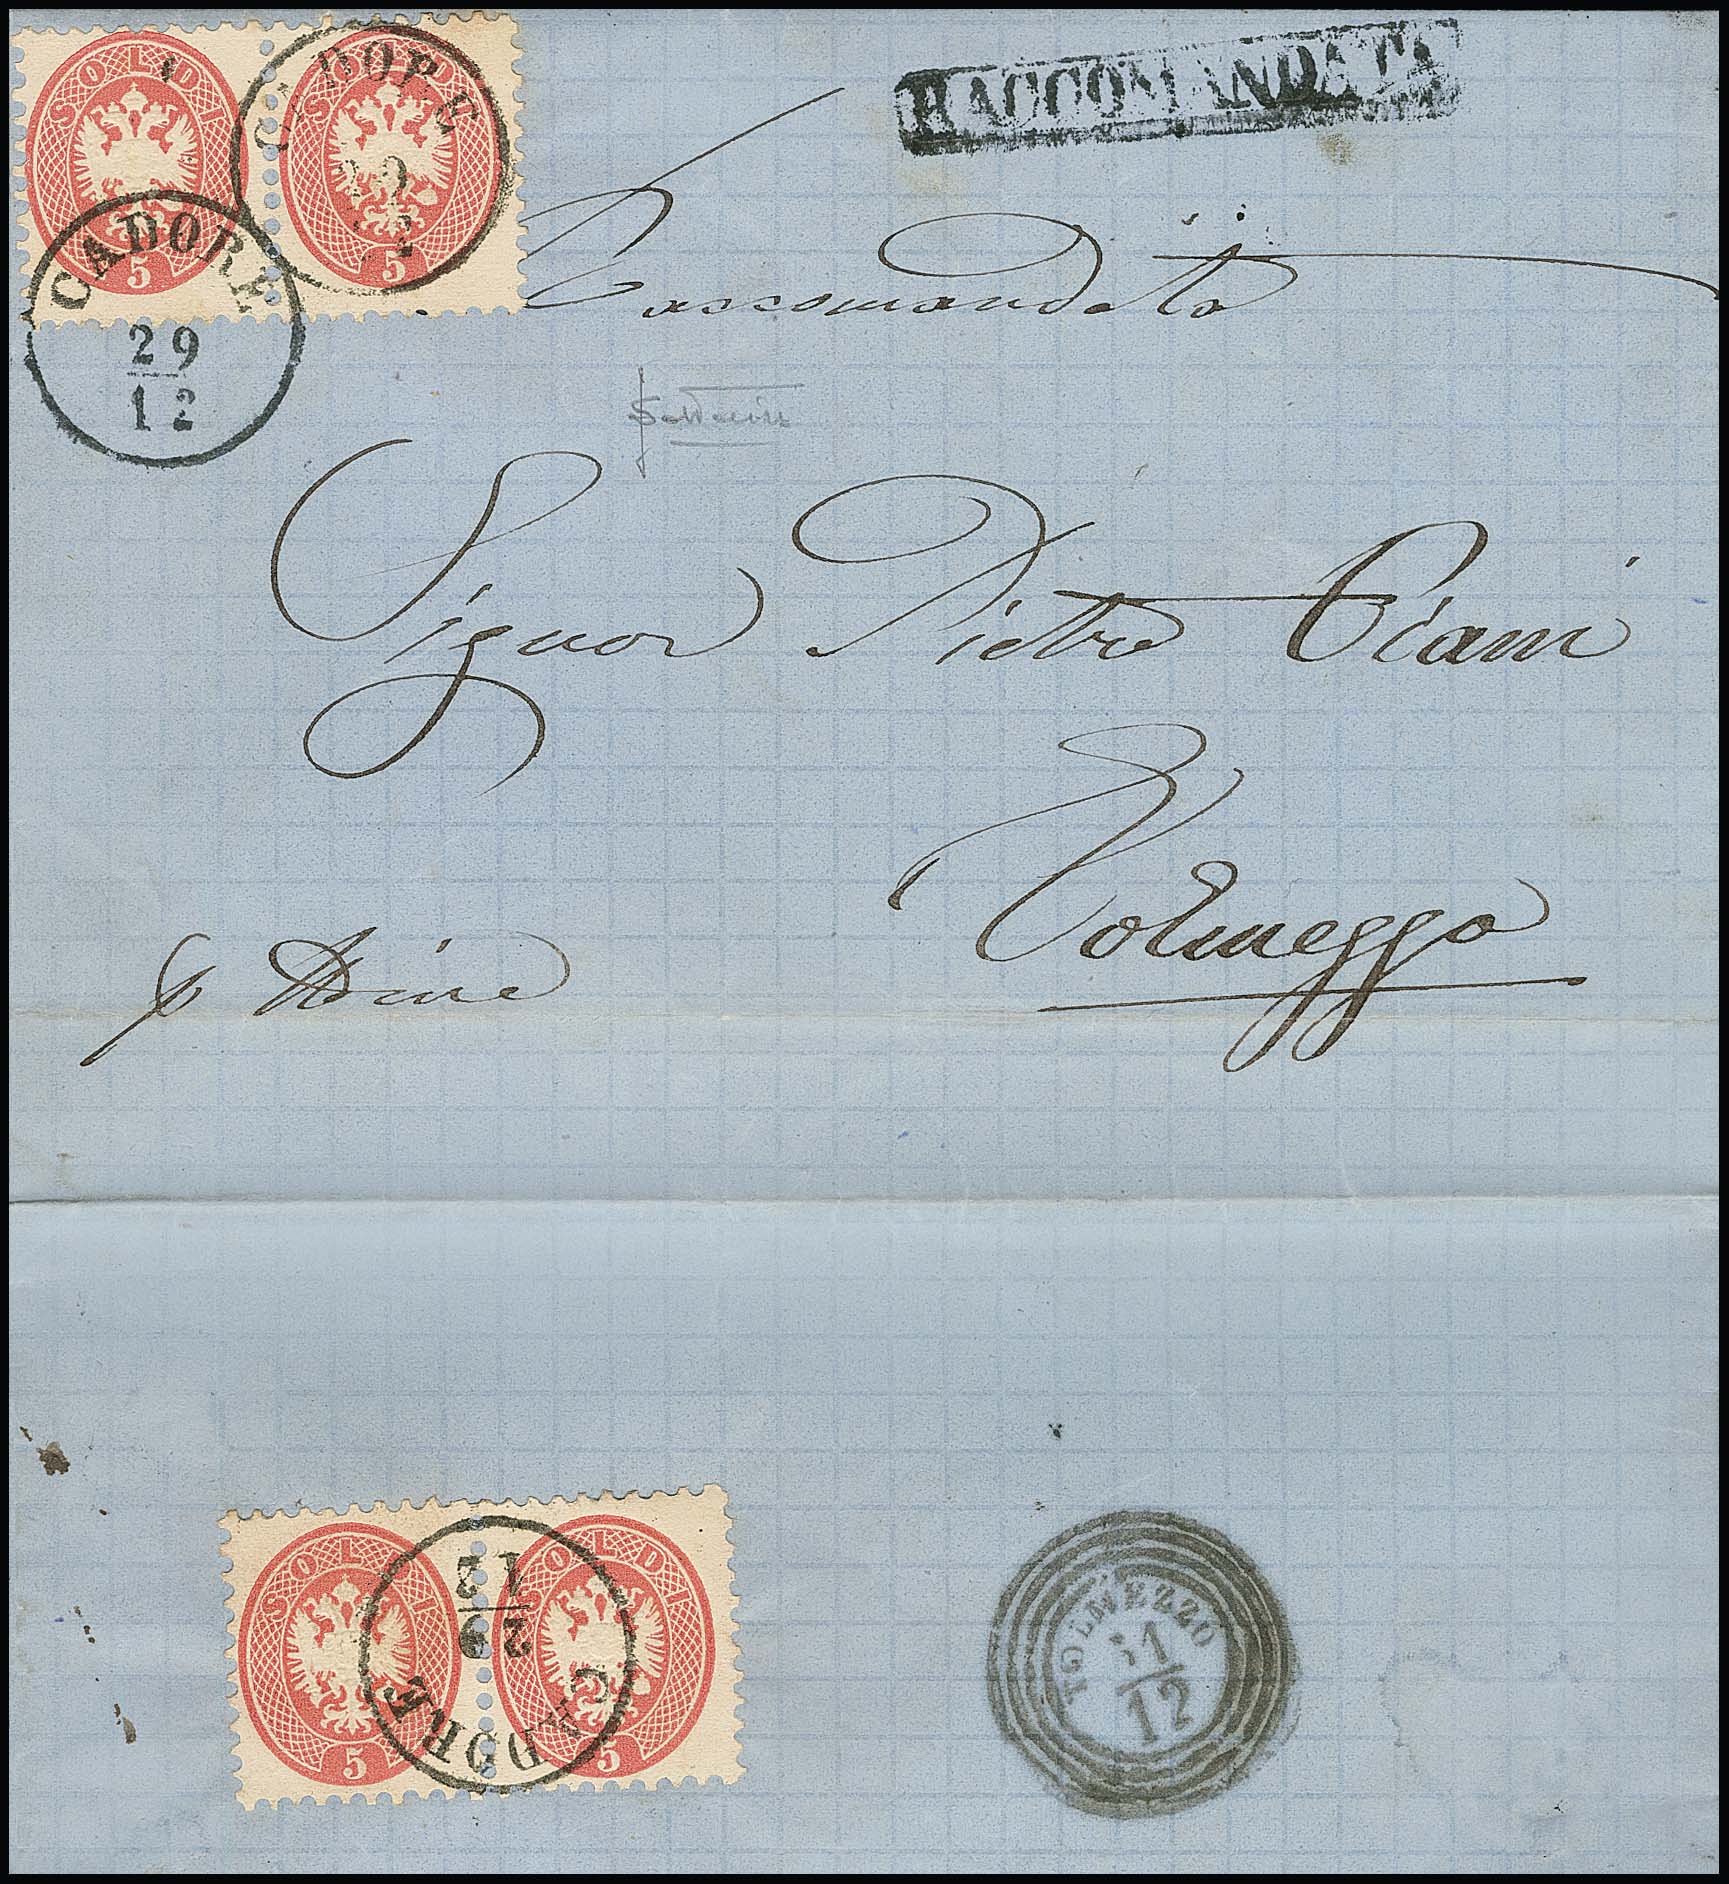 SOLDI SOLDI
5 5
CADORE
29
12
CADORE
29
12
RACCOMANDATA
Raccomandata
Signor Pietro Ciani
Tolmezzo
p Udine
SOLDI SOLDI
5 5
CADORE
29
12
TOLMEZZO
31
12